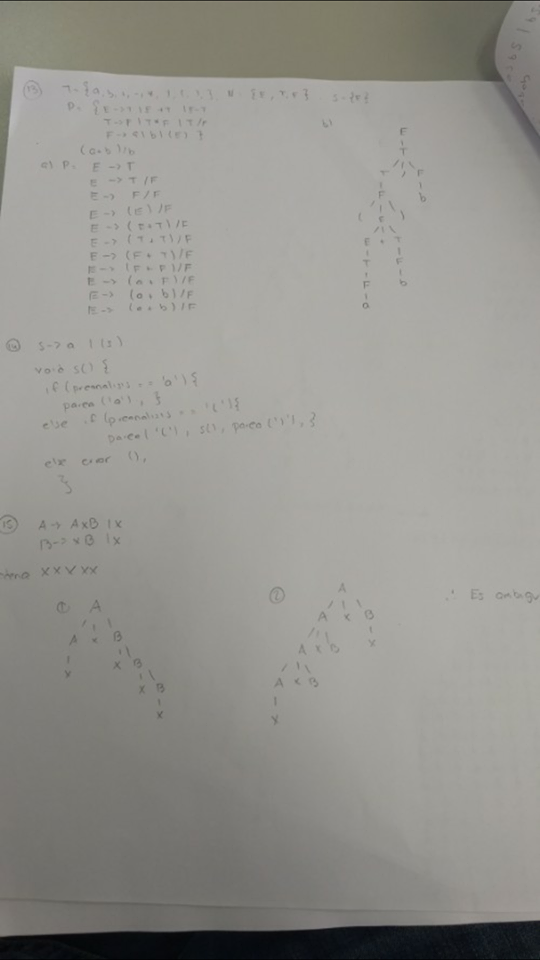 13) T = {a, b, +, -, *, /, (, )} N = {E, T, F} S = {E}
P = {E -> T | E + T | E - T
T -> F | T * F | T / F
F -> a | b | (E) }
(a+b)/b
a) P = E -> T
E -> T / F
E -> F / F
E -> (E) / F
E -> (E+T) / F
E -> (T+T) / F
E -> (F+T) / F
E -> (F+F) / F
E -> (a+F) / F
E -> (a+b) / F
E -> (a+b) / F
b)
E
T
T / F
F b
( E )
E + T
T F
F b
a
14) S -> a | (S)
void S() {
if (preanalisis == 'a') {
parea('a'); }
else if (preanalisis == '('){
parea('('); S(); parea(')'); }
else error ();
}
15) A -> AxB | x
B -> xB | x
XXXXX
1) A
A x B
x x B
x B
x
2) A
A x B
A x B x
A x B
x
∴ Es ambigu